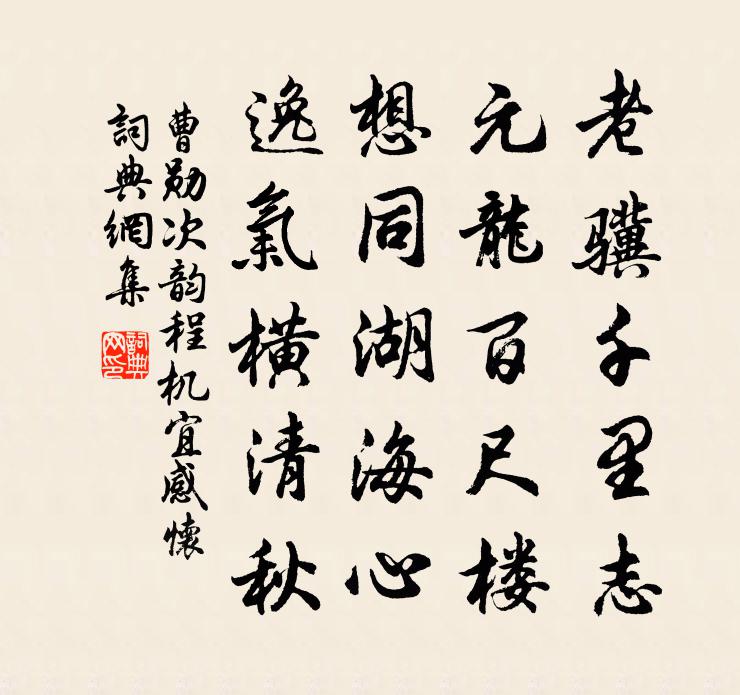 老骥千里志
元龍百尺楼
想同湖海心
逸氣橫清秋
曹勋次韵程机宜感懷
詞典網集
詞典網印